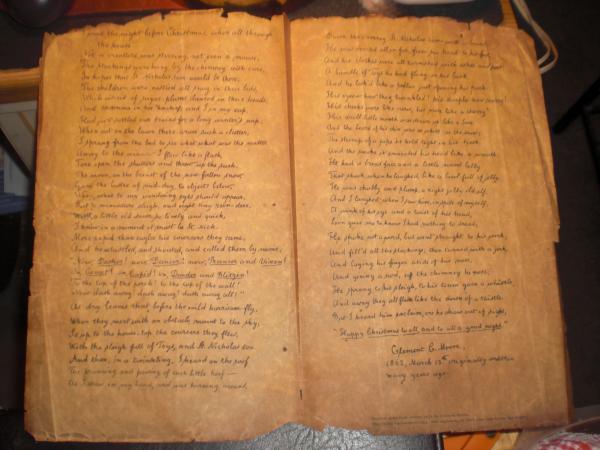 'Twas the night before Christmas, when all through
the house
Not a creature was stirring, not even a mouse;
The stockings were hung by the chimney with care,
In hopes that St. Nicholas soon would be there;
The children were nestled all snug in their beds,
While visions of sugar plums danced in their heads;
And Mamma in her 'kerchief, and I in my cap,
Had just settled our brains for a long winter's nap;
When out on the lawn there arose such a clatter,
I sprang from the bed to see what was the matter.
Away to the window I flew like a flash,
Tore open the shutters and threw up the sash.
The moon, on the breast of the new-fallen snow,
Gave the lustre of mid-day to objects below,
When, what to my wondering eyes should appear,
But a miniature sleigh, and eight tiny rein-deer,
With a little old driver, so lively and quick,
I knew in a moment it must be St. Nick.
More rapid than eagles his coursers they came,
And he whistled, and shouted, and called them by name;
"Now, Dasher! now, Dancer! now, Prancer and Vixen!
On, Comet! on, Cupid! on, Donder and Blitzen!
To the top of the porch! to the top of the wall!
Now dash away! dash away! dash away all!"
As dry leaves that before the wild hurricane fly,
When they meet with an obstacle, mount to the sky;
So up to the house-top the coursers they flew,
With the sleigh full of Toys, and St. Nicholas too.
And then, in a twinkling, I heard on the roof
The prancing and pawing of each little hoof—
As I drew in my head, and was turning around,
Down the chimney St. Nicholas came with a bound.
He was dressed all in fur, from his head to his foot,
And his clothes were all tarnished with ashes and soot;
A bundle of Toys he had flung on his back,
And he look'd like a pedlar just opening his pack.
His eyes—how they twinkled! his dimples how merry!
His cheeks were like roses, his nose like a cherry!
His droll little mouth was drawn up like a bow,
And the beard of his chin was as white as the snow;
The stump of a pipe he held tight in his teeth,
And the smoke it encircled his head like a wreath;
He had a broad face and a little round belly
That shook, when he laughed, like a bowl full of jelly.
He was chubby and plump, a right jolly old elf,
And I laughed, when I saw him, in spite of myself;
A wink of his eye and a twist of his head,
Soon gave me to know I had nothing to dread;
He spoke not a word, but went straight to his work,
And fill'd all the stockings; then turned with a jerk,
And laying his finger aside of his nose,
And giving a nod, up the chimney he rose;
He sprang to his sleigh, to his team gave a whistle,
And away they all flew like the down of a thistle.
But I heard him exclaim, ere he drove out of sight,
"Happy Christmas to all, and to all a good night."
Clement C. Moore,
1862, March 13th originally written
many years ago.